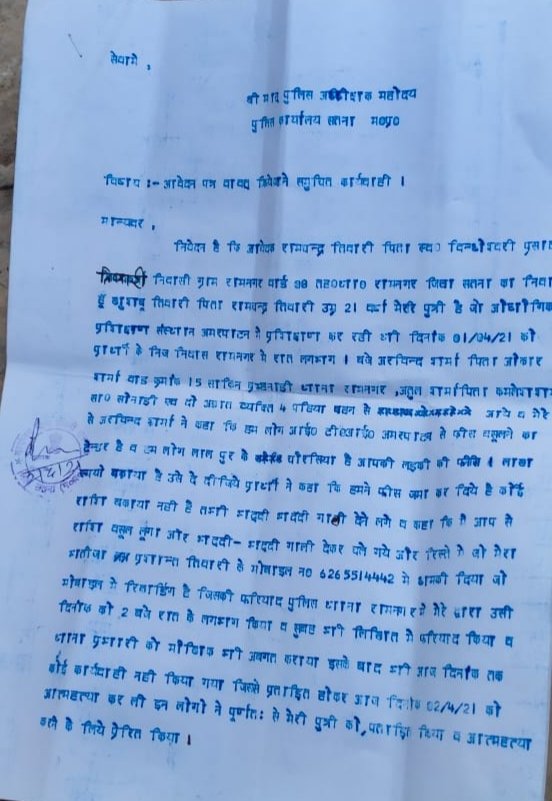 सेवामे ,
श्री मान पुलिस अधीक्षक महोदय
पुलिस कार्यालय सतना म०प्र०
विषय :- आवेदन पत्र वावत् समुचित कार्यवाही ।
मान्यवर ,
निवेदन है कि आवेदक रामचन्द्र तिवारी पिता स्व०
निवासी ग्राम रामनगर वार्ड तह०थाना रामनगर जिला सतना का निवा
हूँ तिवारी पिता रामचन्द्र तिवारी उम्र 21 वर्ष मेरी पुत्री है जो औधोगिक
प्रशिक्षण संस्थान अमरपाटन मे प्रशिक्षण कर रही थी दिनांक 01/04/21 को
प्रार्थी के निज निवास रामनगर मे रात लगभग 1 बजे अरविन्द शर्मा पिता ओंकार
शर्मा वार्ड क्रमांक 15 साकिन थाना रामनगर , अतुल शर्मा पिता
सा० एवं दो अज्ञात व्यक्ति 4 पहिया वाहन से आये व मेरे
से अरविन्द शर्मा ने कहा कि हम लोग आई० टी०आई० अमरपाटन से फीस वसूलने का
टेन्डर है व हम लोग लाल पुर के है आपकी लड़की की फीस 1 लाख
रूपये बकाया है उसे दे दीजिये प्रार्थी ने कहा कि हमने फीस जमा कर दिये है कोई
राशि बकाया नही है तभी भद्दी भद्दी गाली देने लगे व कहा कि मै आप से
राशि वसूल लूंगा और भद्दी - भद्दी गाली देकर चले गये और मे जो मेरा
भतीजा प्रशान्त तिवारी है मोबाइल न0 6265514442 मे धमकी दिया जो
मोबाइल मे रिकार्डिंग है जिसकी फरियाद पुलिस थाना रामनगर मे मेरे द्वारा उसी
दिनांक को 2 बजे रात के लगभग किया व सुबह भी लिखित मे फरियाद किया व
थाना प्रभारी को मौखिक भी अवगत कराया इसके बाद भी आज दिनांक तक
कोई कार्यवाही नही किया गया जिससे प्रताड़ित होकर आज दिनांक 02/4/21 को
आत्महत्या कर ली इन लोगो ने पूर्णतः से मेरी पुत्री को, प्रताड़ित किया व आत्महत्या
करने के लिये प्रेरित किया ।